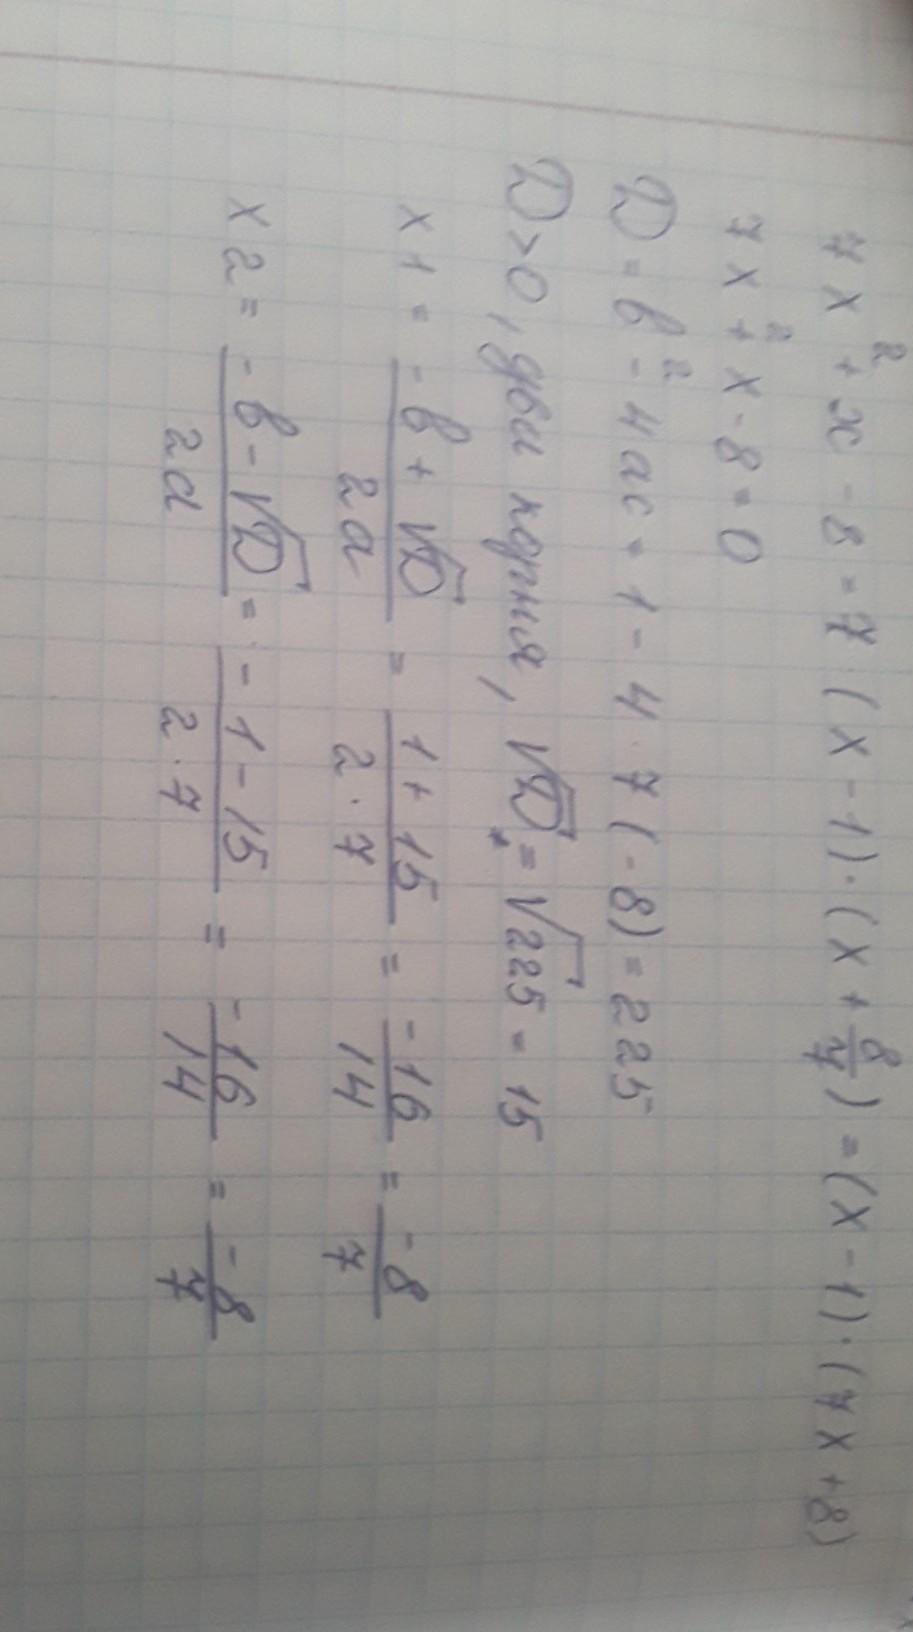 7x² + x - 8 = 7 · (x - 1) · (x + 8/7) = (x - 1) · (7x + 8)
7x² + x - 8 = 0
D = b² - 4ac = 1 - 4 · 7 (-8) = 225
D > 0, два корня, √D = √225 = 15
x1 = (-b + √D)/(2a) = (1 + 15)/(2 · 7) = -16/14 = -8/7
x2 = (-b - √D)/(2a) = (-1 - 15)/(2 · 7) = -16/14 = -8/7